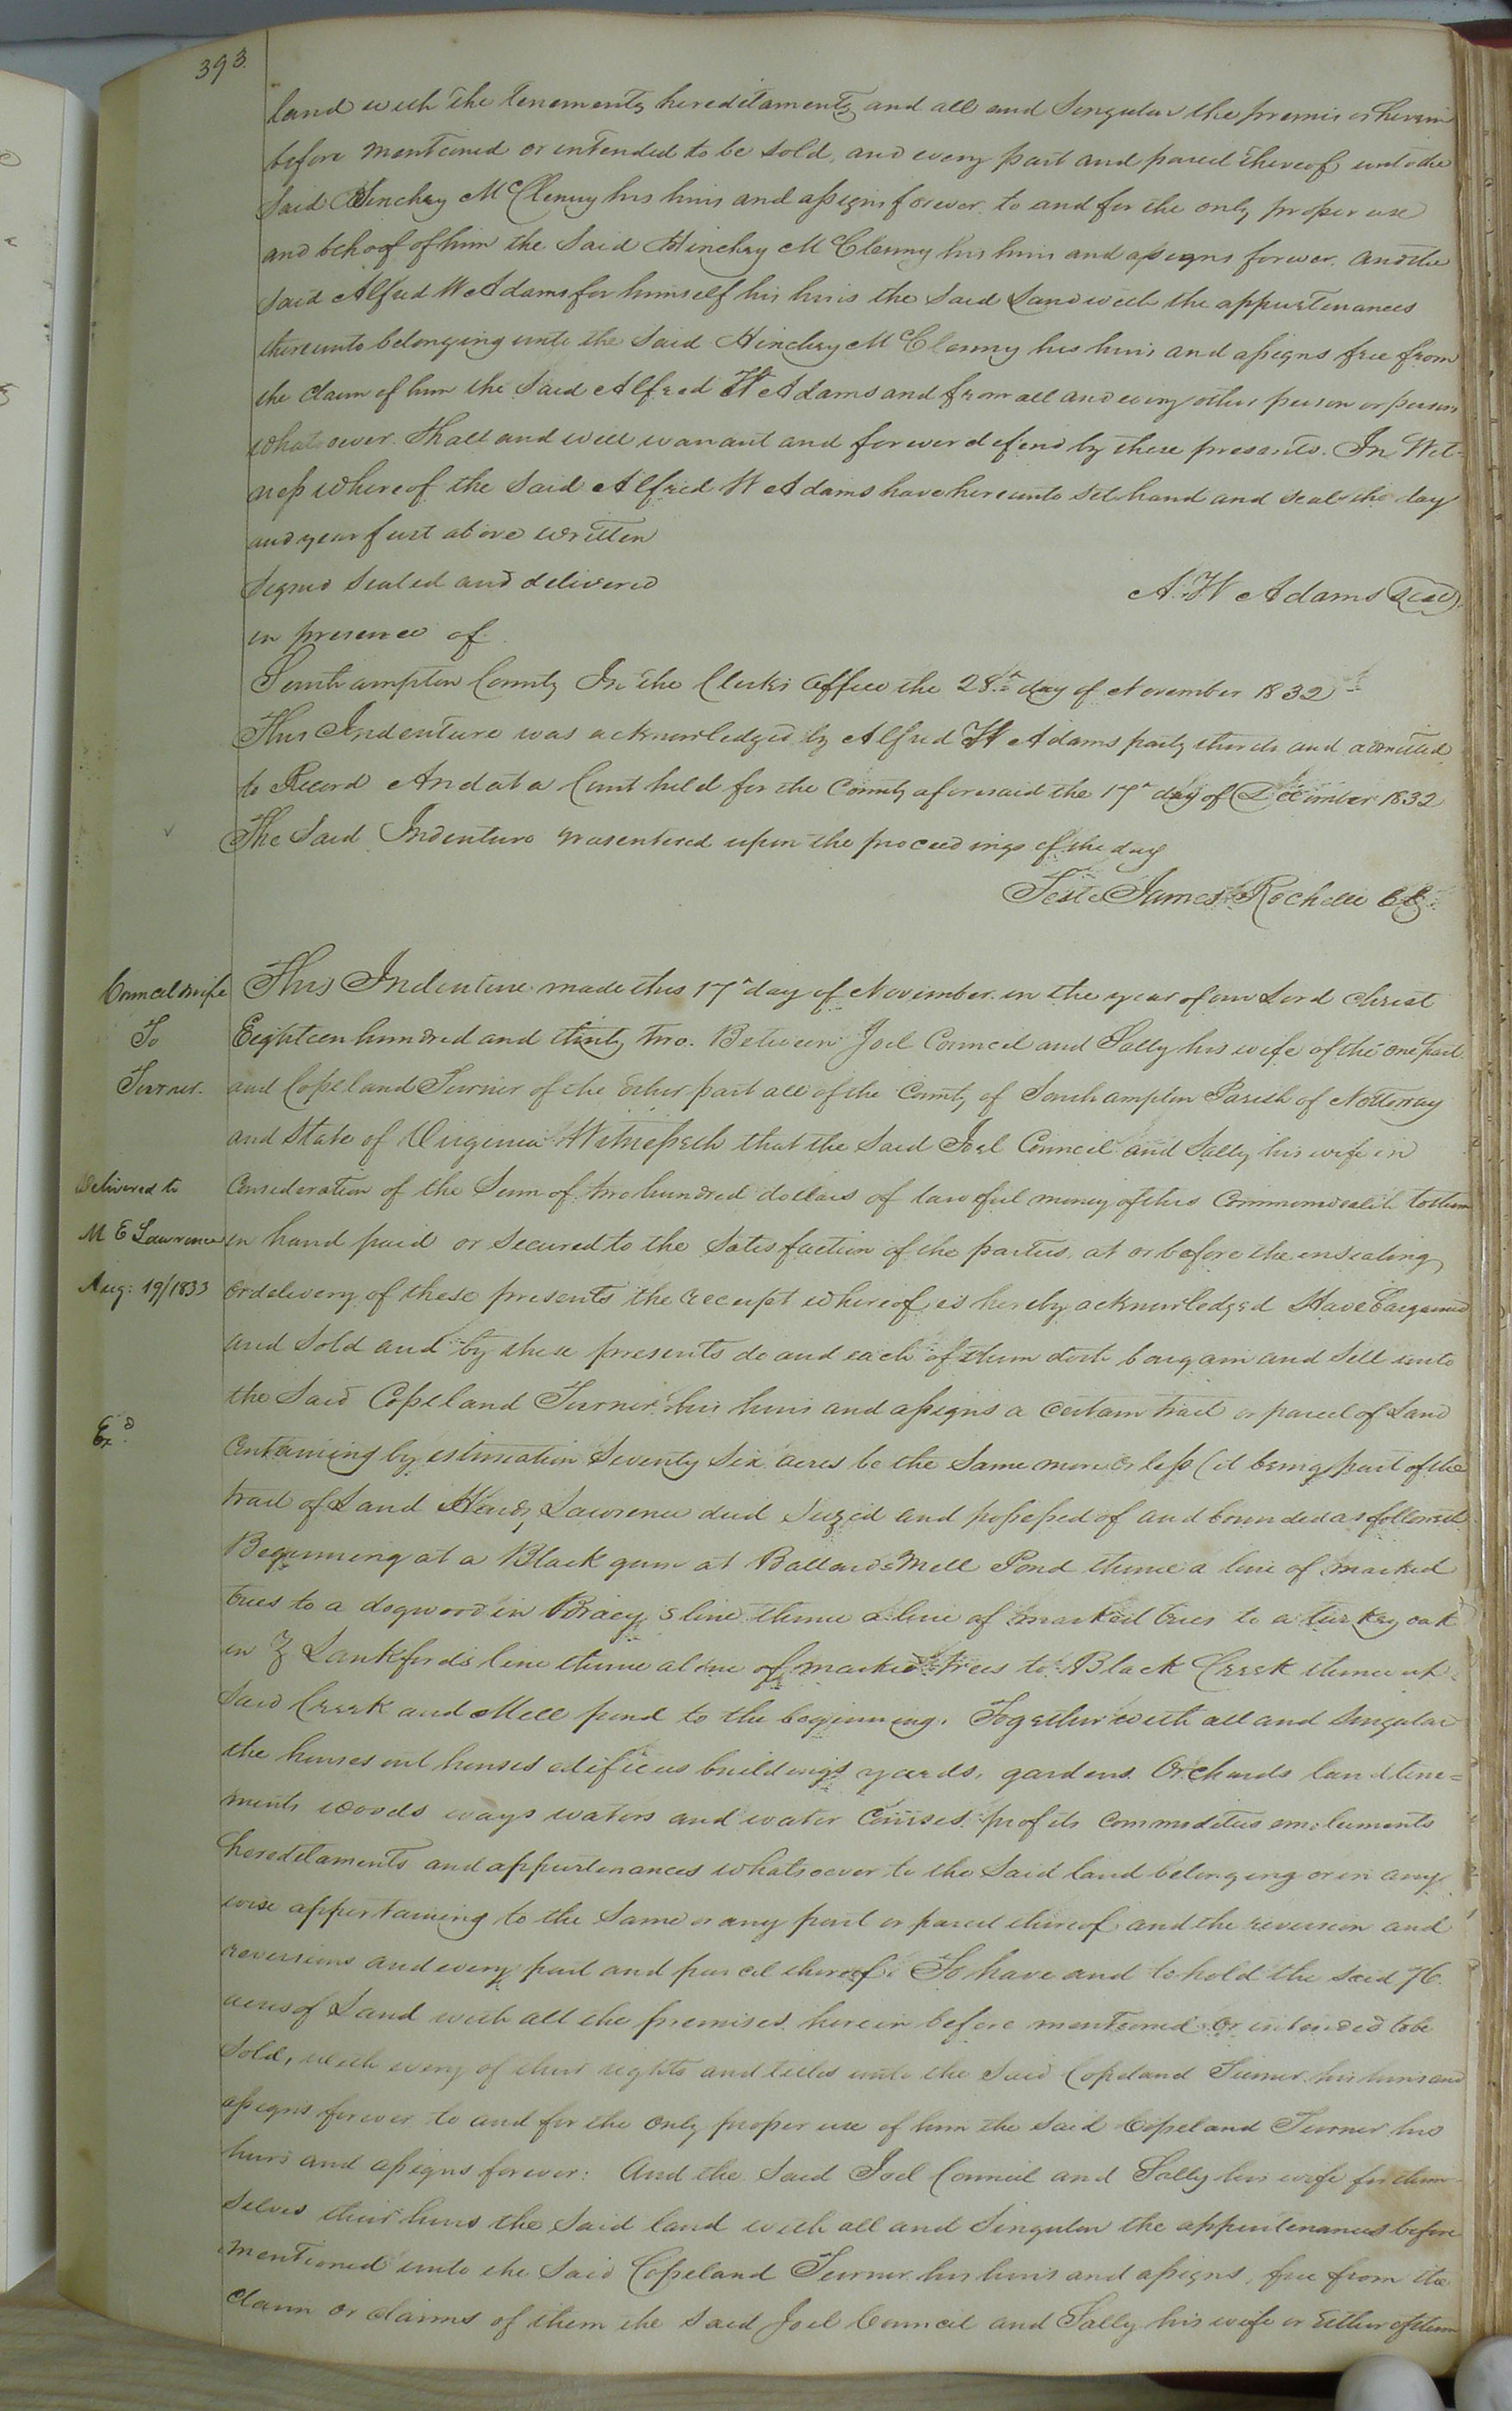 393.
land with the tenements hereditaments and all and Singular the premises herein
before mentioned or intended to be sold, and every part and parcel thereof unto the
Said Hinchey McClenny his heirs and assigns forever. to and for the only proper use
and behoof of him the Said Hinchey McClenny his heirs and assigns forever. And the
said Alfred W Adams for himself his heirs the Said Land with the appurtenances
thereunto belonging unto the Said Hinchey McClenny his heirs and assigns free from
the claim of him the Said Alfred W Adams and from all and every other person or persons
whatsoever. Shall and will warrant and forever defend by these presents. In Wit-
ness whereof the Said Alfred W Adams have hereunto set hand and seal the day
and year first above written
Signed Sealed and delivered
A. W Adams Seal
in presence of
Southampton County In the Clerks Office the 28th day of November 1832
This Indenture was acknowledged by Alfred W Adams party thereto and admitted
to Record And at a Court held for the County aforesaid the 17th day of December 1832
The Said Indenture was entered upon the proceedings of the day
Teste James Rochelle CC
Council & wife
To
Turner.
This Indenture made this 17th day of November in the year of our Lord Christ
Eighteen hundred and thirty two. Between Joel Council and Sally his wife of the one part
and Copeland Turner of the other part all of the County of Southampton Parish of Nottoway
and State of Virginia Witnesseth that the Said Joel Council and Sally his wife in
Delivered to
M E Lawrence
Aug: 19/1833
Consideration of the Sum of two hundred dollars of lawful money of this Commonwealth to them
in hand paid or Secured to the Satisfaction of the parties at or before the ensealing
or delivery of these presents the receipt whereof is hereby acknowledged Have bargained
and Sold and by these presents do and each of them doth bargain and Sell unto
the Said Copeland Turner his heirs and assigns a certain tract or parcel of Land
Exd
Containing by estimation Seventy Six acres be the Same more or less (it being part of the
tract of Land Henry Lawrence died Seized and possessed of and bounded as followeth
Beginning at a Black gum at Ballards Mill Pond thence a line of marked
trees to a dogwood in Bracy's line thence a line of marked trees to a turkey oak
in Z Lankfords line thence a line of marked trees to Black Creek thence up
Said Creek and Mill pond to the beginning. Together with all and Singular
the houses out houses edifices buildings yards, gardens Orchards land tene=
ments woods ways waters and water Courses profits Commodities emoluments
hereditaments and appurtenances whatsoever to the Said land belonging or in any
wise appertaining to the Same or any part or parcel thereof and the reversion and
reversions and every part and parcel thereof. To have and to hold the said 76
acres of Land with all the premises herein before mentioned or intended to be
Sold, with every of their rights and titles unto the Said Copeland Turner his heirs and
assigns forever to and for the only proper use of him the Said Copeland Turner his
heirs and assigns forever: And the Said Joel Council and Sally his wife for them-
selves their heirs the Said land with all and Singular the appurtenances before
mentioned unto the Said Copeland Turner his heirs and assigns, free from the
claim or claims of them the Said Joel Council and Sally his wife or Either of them